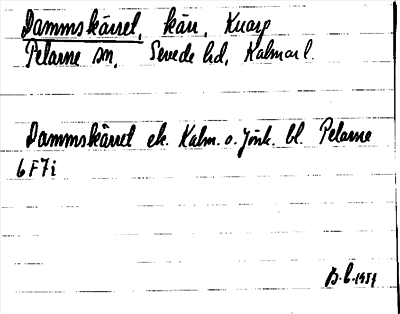 Dammskärret, kärr, Kvarp
Pelarne sn, Sevede hd, Kalmar l.
Dammskärret ek. Kalm. o. Jönk. bl. Pelarne
6F7i